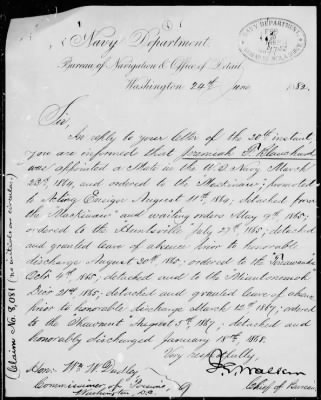 NAVY DEPARTMENT
Navy Department
Bureau of Navigation & Office of Detail
Washington 24th June 1882.
Sir,
In reply to your letter of the 20th instant,
you are informed that Jeremiah P. Blanchard
was appointed a Mate in the U.S. Navy March
23rd, 1864, and ordered to the "Mackinaw"; promoted
to Acting Ensign August 11th 1864; detached from
the "Mackinaw" and waiting orders May 9th, 1865;
ordered to the Huntsville July 27th 1865; detached
and granted leave of absence prior to honorable
discharge August 30th 1865; ordered to the
Octr 9th, 1865, detached and to the Miantonomoh
21st, 1865; detached and granted leave of absence
prior to honorable discharge March 12th 1867; ordered
to the August 5th 1867; detached and
honorably discharged January 18th, 1868.
Very respectfully,
J. G. Walker
Chief of Bureau
Hon: Wm W. Dudley
Commissioner of Pensions
Washington, D.C.
(Claim No. (no initials on circular)